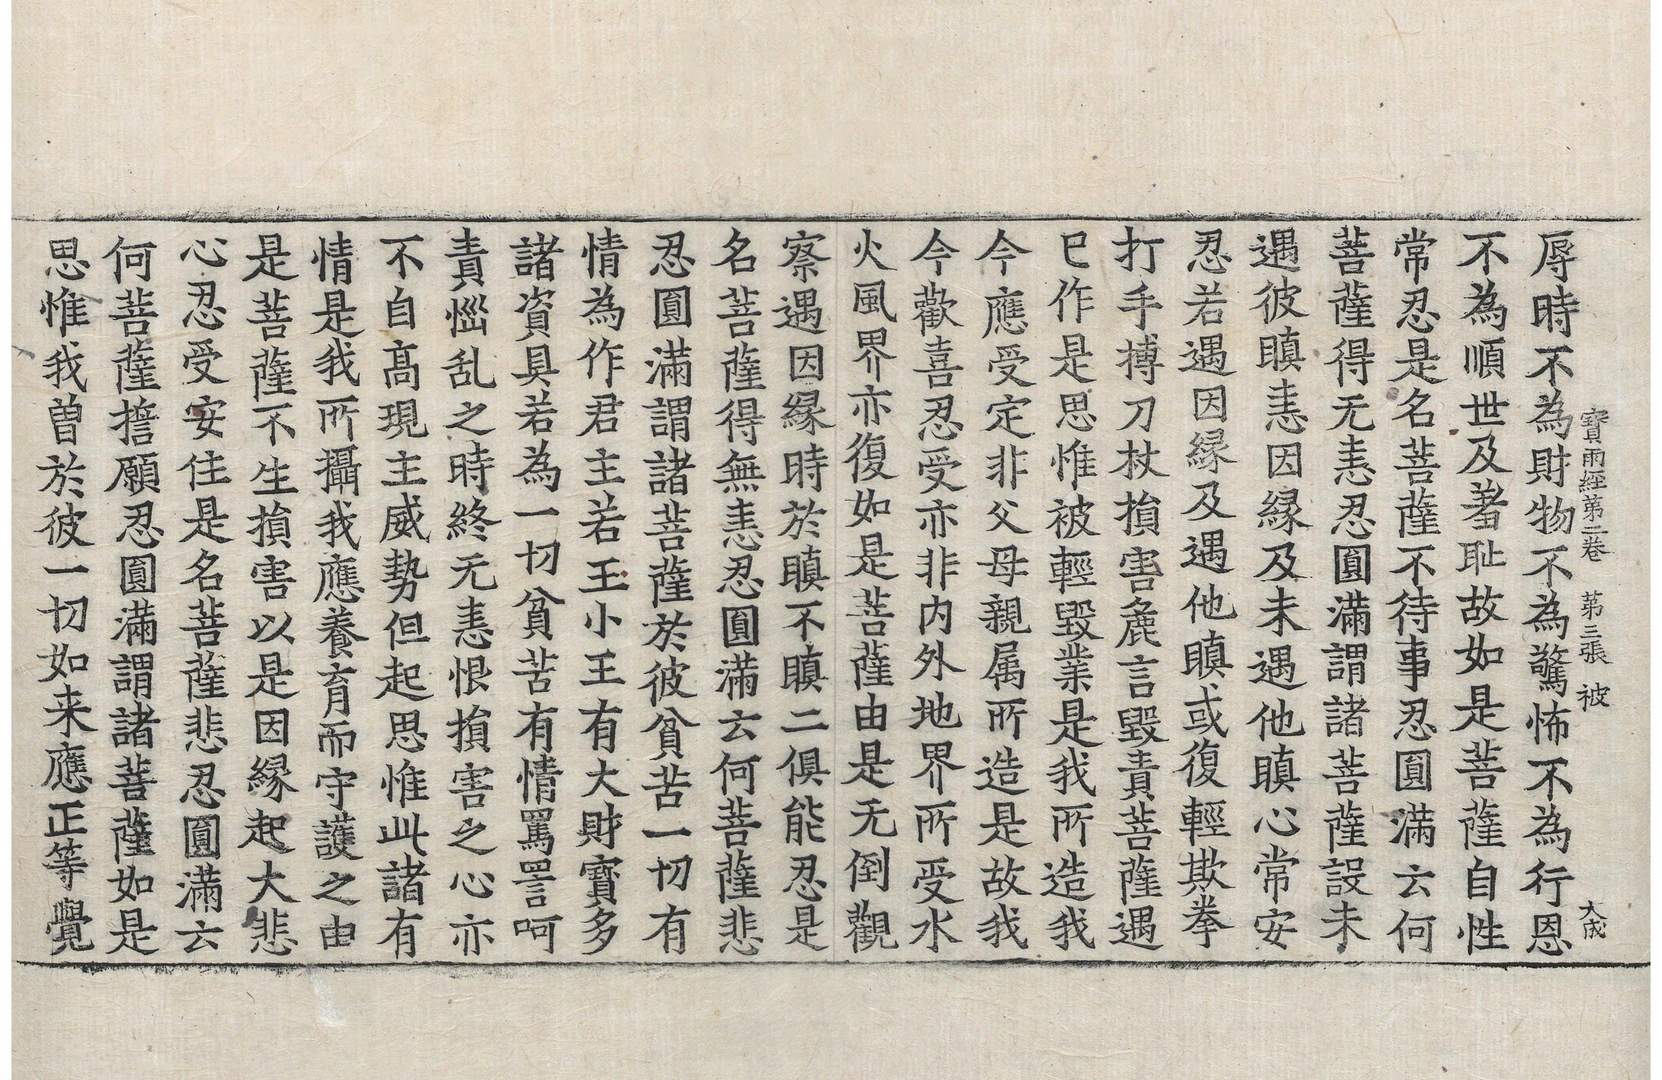 寶雨經第二卷　第三張　被　大成
辱時不為財物不為驚怖不為行恩
不為順世及羞耻故如是菩薩自性
常忍是名菩薩不待事忍圓滿云何
菩薩得无恚忍圓滿謂諸菩薩設未
遇彼瞋恚因緣及未遇他瞋心常安
忍若遇因緣及遇他瞋或復輕欺拳
打手搏刀杖損害麁言毀責菩薩遇
已作是思惟被輕毀業是我所造我
今應受定非父母親属所造是故我
今歡喜忍受亦非內外地界所受水
火風界亦復如是菩薩由是无倒觀
察遇因緣時於瞋不瞋二俱能忍是
名菩薩得無恚忍圓滿云何菩薩悲
忍圓滿謂諸菩薩於彼貧苦一切有
情為作君主若王小王有大財寶多
諸資具若為一切貧苦有情罵詈呵
責惱乱之時終无恚恨損害之心亦
不自髙現主威勢但起思惟此諸有
情是我所攝我應養育而守護之由
是菩薩不生損害以是因緣起大悲
心忍受安住是名菩薩悲忍圓滿云
何菩薩擔願忍圓滿謂諸菩薩如是
思惟我曾於彼一切如来應正等覺